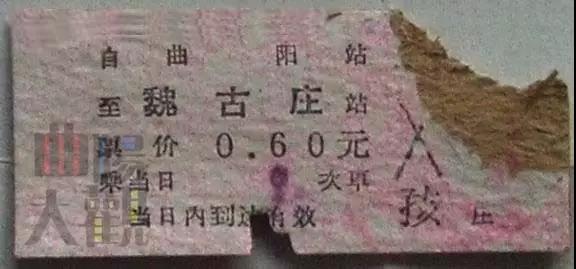 自曲阳站
至魏古庄站
票价0.60元
乘当日 次車
当日内到达有效
孩
庄
曲陽
大觀